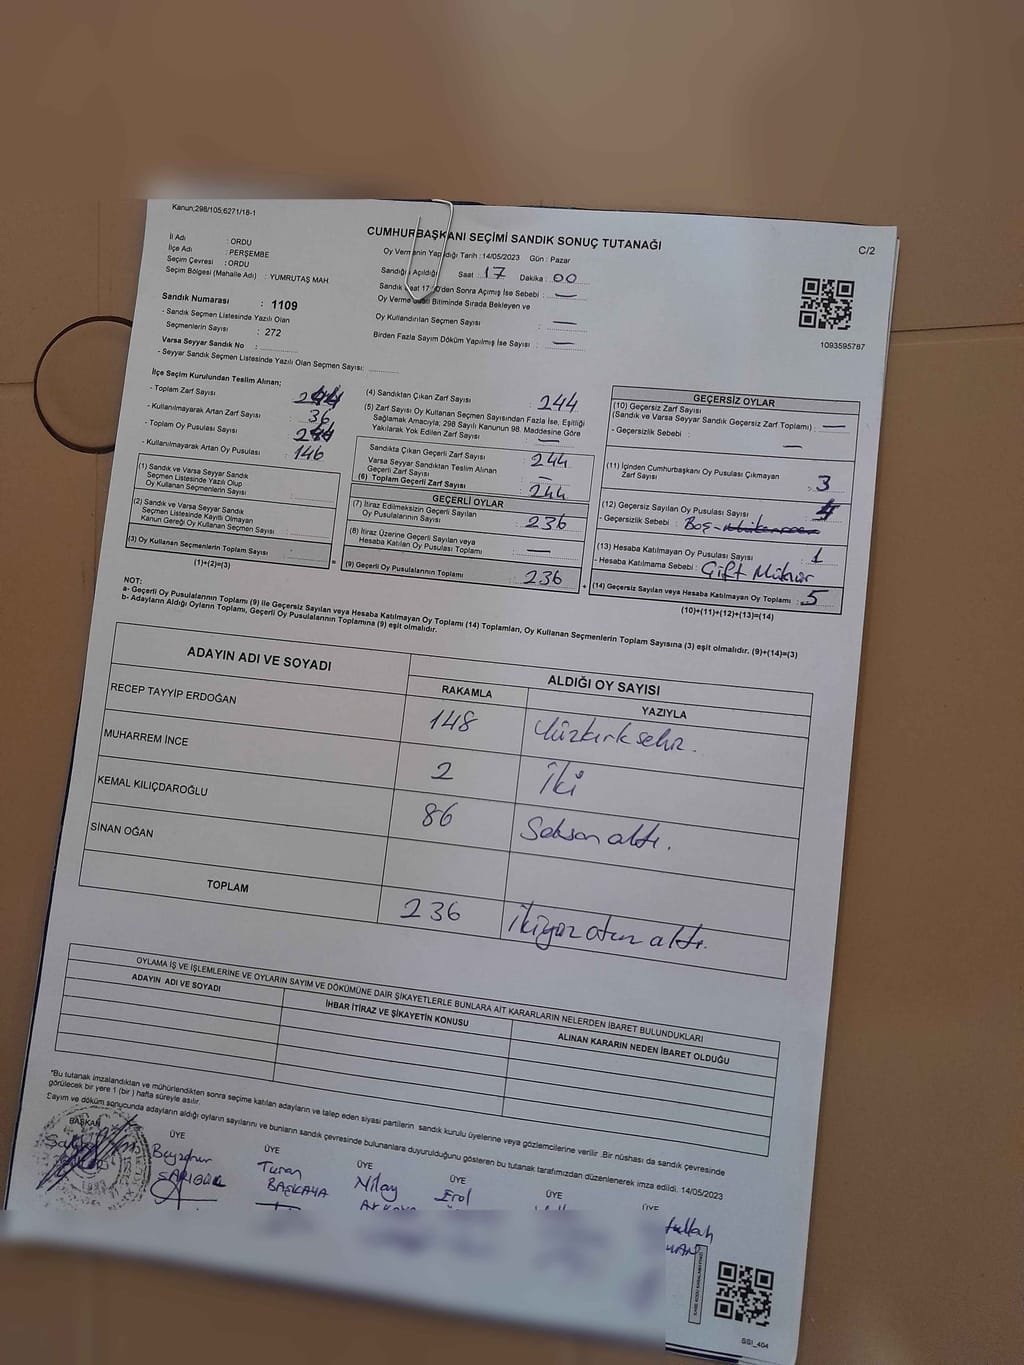 Kanun;298/105;6271/18-1
CUMHURBAŞKANI SEÇİMİ SANDIK SONUÇ TUTANAĞI
C/2
İl Adı : ORDU
İlçe Adı : PERŞEMBE
Seçim Çevresi : ORDU
Seçim Bölgesi (Mahalle Adı) : YUMRUTAŞ MAH
Sandık Numarası : 1109
- Sandık Seçmen Listesinde Yazılı Olan
Seçmenlerin Sayısı : 272
Varsa Seyyar Sandık No :
- Seyyar Sandık Seçmen Listesinde Yazılı Olan Seçmen Sayısı:
Oy Vermenin Yapıldığı Tarih :14/05/2023 Gün : Pazar
Sandığın Açıldığı Saat : 17 Dakika : 00
Sandık Saat 17:00'den Sonra Açımış İse Sebebi : —
Oy Verme Bitiminde Sırada Bekleyen ve
Oy Kullandırılan Seçmen Sayısı : —
Birden Fazla Sayım Döküm Yapılmış İse Sayısı : —
1093595787
İlçe Seçim Kurulundan Teslim Alınan;
- Toplam Zarf Sayısı
- Kullanılmayarak Artan Zarf Sayısı 36
- Toplam Oy Pusulası Sayısı
- Kullanılmayarak Artan Oy Pusulası 146
(1) Sandık ve Varsa Seyyar Sandık
Seçmen Listesinde Yazılı Olup
Oy Kullanan Seçmenlerin Sayısı :
(2) Sandık ve Varsa Seyyar Sandık
Seçmen Listesinde Kayıtlı Olmayan
Kanun Gereği Oy Kullanan Seçmen Sayısı :
(3) Oy Kullanan Seçmenlerin Toplam Sayısı :
(1)+(2)=(3)
(4) Sandıktan Çıkan Zarf Sayısı : 244
(5) Zarf Sayısı Oy Kullanan Seçmen Sayısından Fazla İse, Eşitliği
Sağlamak Amacıyla; 298 Sayılı Kanunun 98. Maddesine Göre
Yakılarak Yok Edilen Zarf Sayısı : —
Sandıkta Çıkan Geçerli Zarf Sayısı : 244
Varsa Seyyar Sandıktan Teslim Alınan
Geçerli Zarf Sayısı : —
(6) Toplam Geçerli Zarf Sayısı : 244
GEÇERLİ OYLAR
(7) İtiraz Edilmeksizin Geçerli Sayılan
Oy Pusulalarının Sayısı : 236
(8) İtiraz Üzerine Geçerli Sayılan veya
Hesaba Katılan Oy Pusulası Toplamı : —
(9) Geçerli Oy Pusulalarının Toplamı : 236
GEÇERSİZ OYLAR
(10) Geçersiz Zarf Sayısı
(Sandık ve Varsa Seyyar Sandık Geçersiz Zarf Toplamı) : —
- Geçersizlik Sebebi : —
(11) İçinden Cumhurbaşkanı Oy Pusulası Çıkmayan
Zarf Sayısı : 3
(12) Geçersiz Sayılan Oy Pusulası Sayısı :
- Geçersizlik Sebebi : Boş
(13) Hesaba Katılmayan Oy Pusulası Sayısı : 1
- Hesaba Katılmama Sebebi : Çift Mühür
(14) Geçersiz Sayılan veya Hesaba Katılmayan Oy Toplamı : 5
(10)+(11)+(12)+(13)=(14)
NOT:
a- Geçerli Oy Pusulalarının Toplamı (9) ile Geçersiz Sayılan veya Hesaba Katılmayan Oy Toplamı (14) Toplamları, Oy Kullanan Seçmenlerin Toplam Sayısına (3) eşit olmalıdır. (9)+(14)=(3)
b- Adayların Aldığı Oyların Toplamı, Geçerli Oy Pusulalarının Toplamına (9) eşit olmalıdır.
ADAYIN ADI VE SOYADI
ALDIĞI OY SAYISI
RAKAMLA YAZIYLA
RECEP TAYYİP ERDOĞAN 148 Yüzkırksekiz.
MUHARREM İNCE 2 İki
KEMAL KILIÇDAROĞLU 86 Seksen altı.
SİNAN OĞAN
TOPLAM 236 ikiyüz otuz altı.
OYLAMA İŞ VE İŞLEMLERİNE VE OYLARIN SAYIM VE DÖKÜMÜNE DAİR ŞİKAYETLERLE BUNLARA AİT KARARLARIN NELERDEN İBARET BULUNDUKLARI
ADAYIN ADI VE SOYADI
İHBAR İTİRAZ VE ŞİKAYETİN KONUSU
ALINAN KARARIN NEDEN İBARET OLDUĞU
*Bu tutanak imzalandıktan ve mühürlendikten sonra seçime katılan adayların ve talep eden siyasi partilerin sandık kurulu üyelerine veya gözlemcilerine verilir .Bir nüshası da sandık çevresinde
görülecek bir yere 1 (bir ) hafta süreyle asılır.
Sayım ve döküm sonucunda adayların aldığı oyların sayılarını ve bunların sandık çevresinde bulunanlara duyurulduğunu gösteren bu tutanak tarafımızdan düzenlenerek imza edildi. 14/05/2023
BAŞKAN ÜYE ÜYE ÜYE ÜYE ÜYE ÜYE
Beyzanur Turan Nilay Erol
SARIGÜL BAŞKAYA
SSI_404